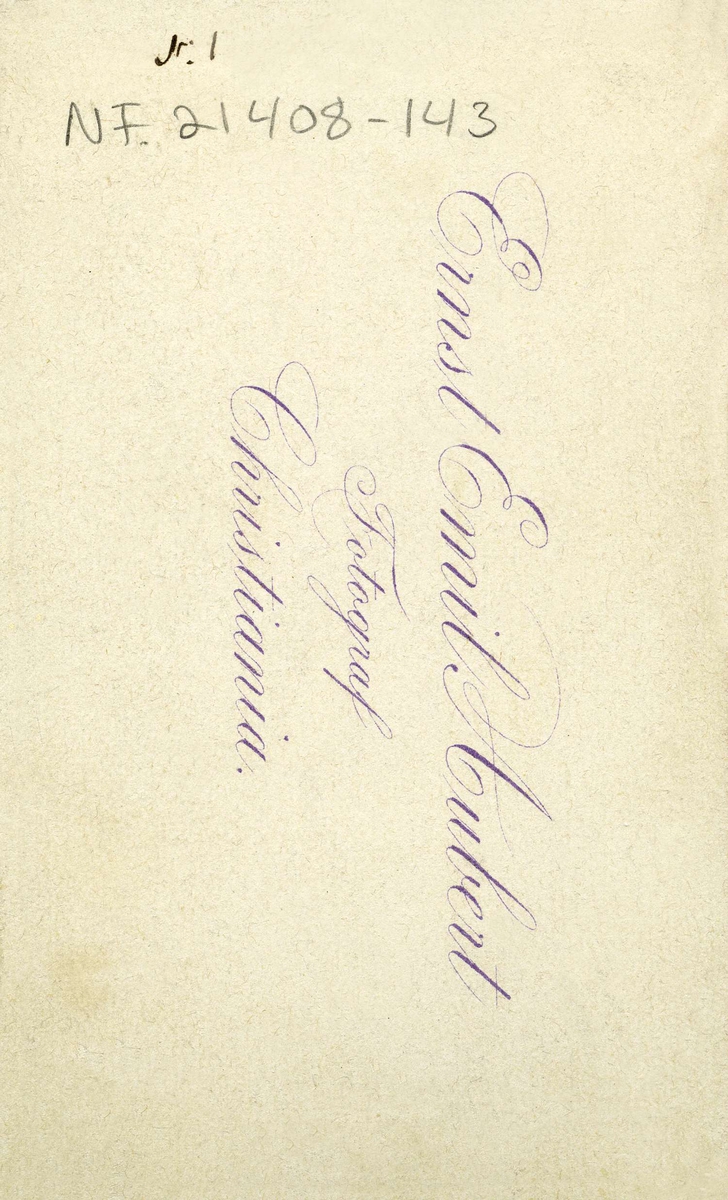 Nr. 1
NF. 21408-143
Ernst Emil Aubert
Fotograf
Christiania.